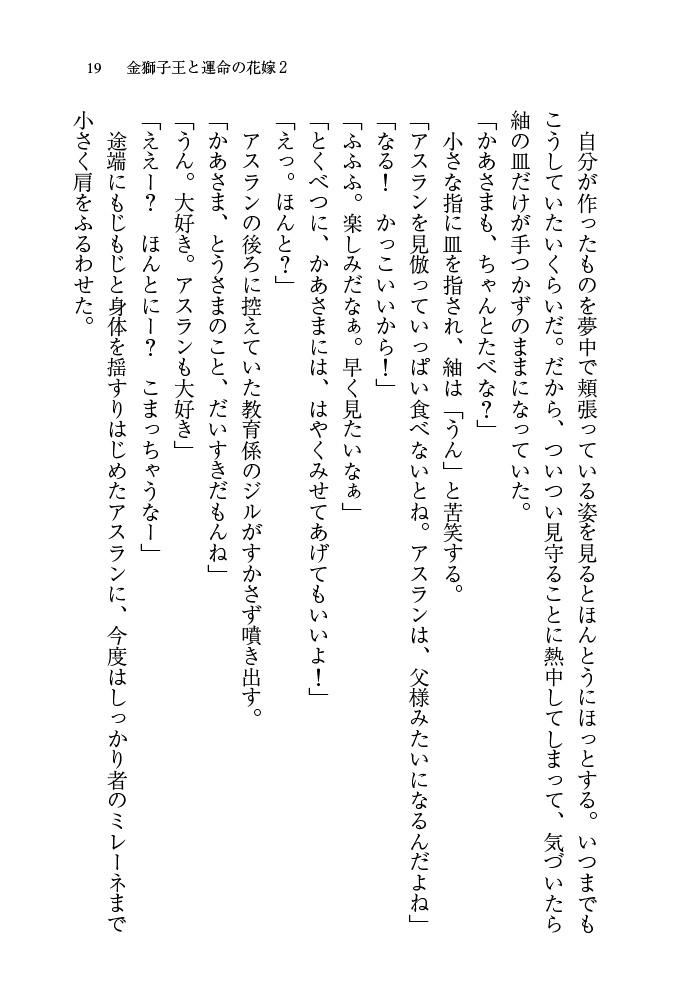 19　金獅子王と運命の花嫁２
　自分が作ったものを夢中で頬張っている姿を見るとほんとうにほっとする。いつまでも
こうしていたいくらいだ。だから、ついつい見守ることに熱中してしまって、気づいたら
紬の皿だけが手つかずのままになっていた。
「かあさまも、ちゃんとたべな？」
　小さな指に皿を指され、紬は「うん」と苦笑する。
「アスランを見倣っていっぱい食べないとね。アスランは、父様みたいになるんだよね」
「なる！　かっこいいから！」
「ふふふ。楽しみだなぁ。早く見たいなぁ」
「とくべつに、かあさまには、はやくみせてあげてもいいよ！」
「えっ。ほんと？」
　アスランの後ろに控えていた教育係のジルがすかさず噴き出す。
「かあさま、とうさまのこと、だいすきだもんね」
「うん。大好き。アスランも大好き」
「ええー？　ほんとにー？　こまっちゃうなー」
　途端にもじもじと身体を揺すりはじめたアスランに、今度はしっかり者のミレーネまで
小さく肩をふるわせた。